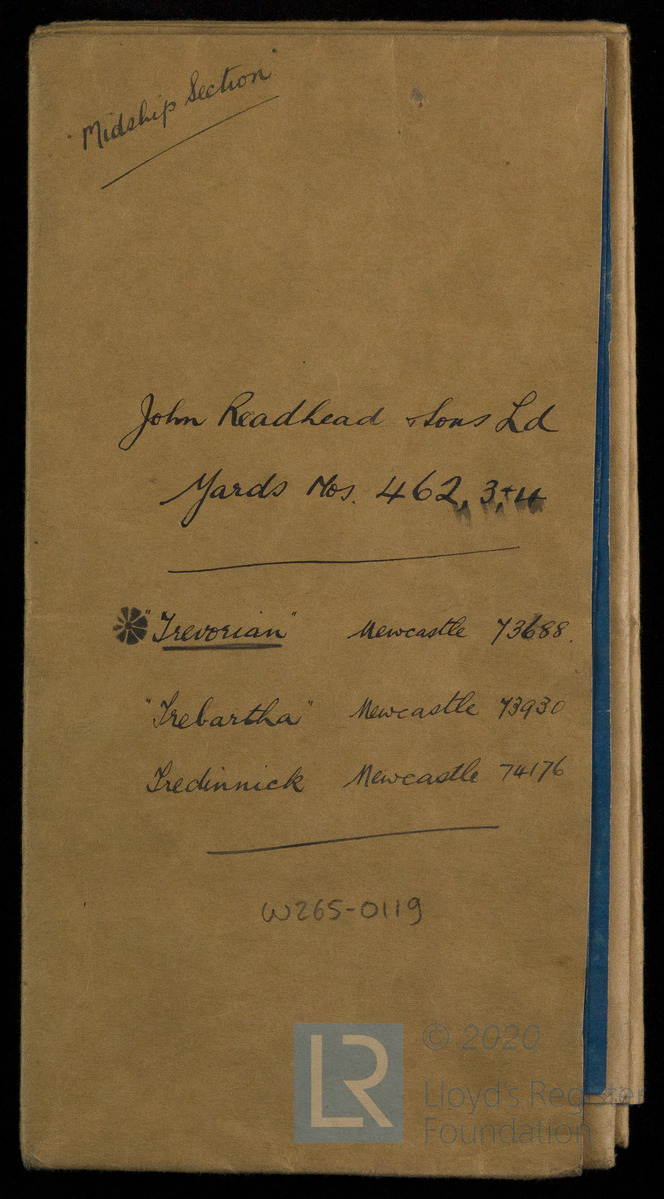 "Midship Section"
John Readhead & Sons Ld
Yards Nos. 462, 3, + 4
"Trevorian" Newcastle 73688.
"Trebartha" Newcastle 73930
Tredinnick Newcastle 74176
W265-0119
LR
© 2020
Lloyd's Register
Foundation